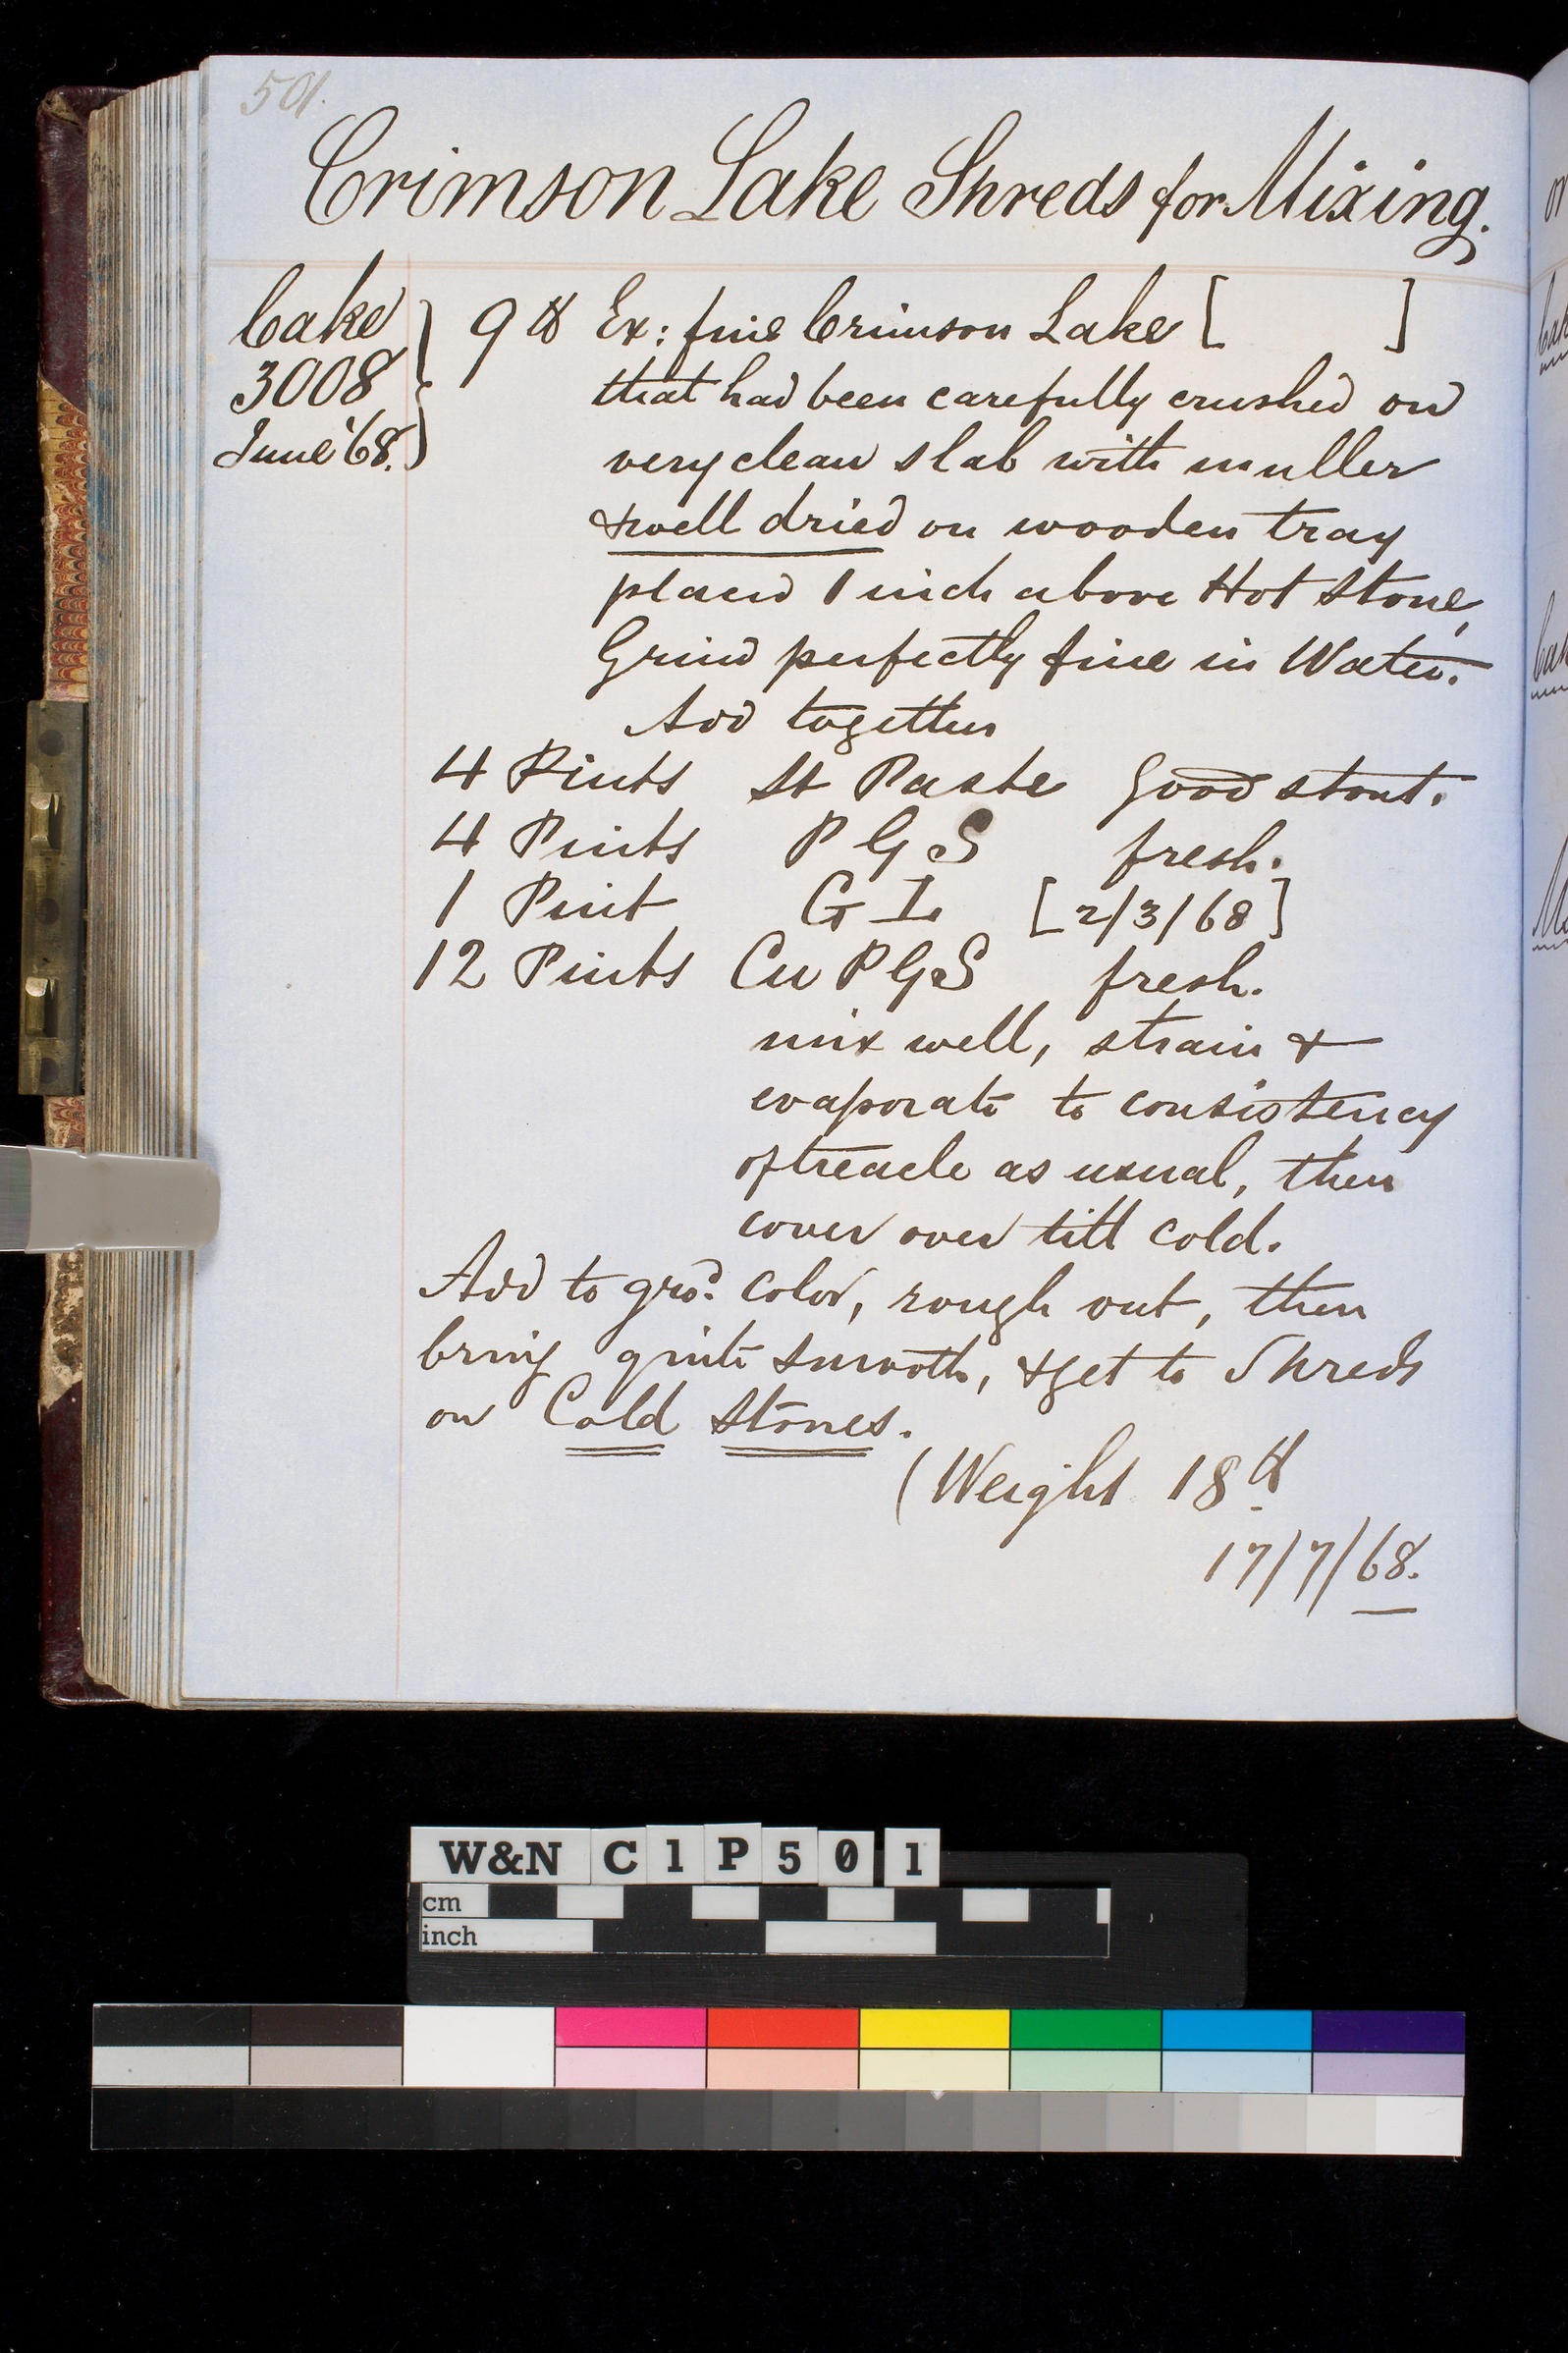 501.
Crimson Lake Shreds for Mixing.
Cake
3008
June '68.
9 lb Ex: fine Crimson Lake [ ]
that had been carefully crushed on
very clean slab with muller
& well dried on wooden tray
placed 1 inch above Hot Stone,
Grind perfectly fine in Water.
Add together
4 Pints St Paste Good stout.
4 Pints P G S fresh.
1 Pint G I. [2/3/68]
12 Pints Cu P G S fresh.
mix well, strain &
evaporate to consistency
of treacle as usual, then
cover over till cold.
Add to gro.d color, rough out, then
bring quite smooth, & get to Shreds
on Cold Stones.
(Weight 18 lb
17/7/68.
W&N C1P501
cm
inch